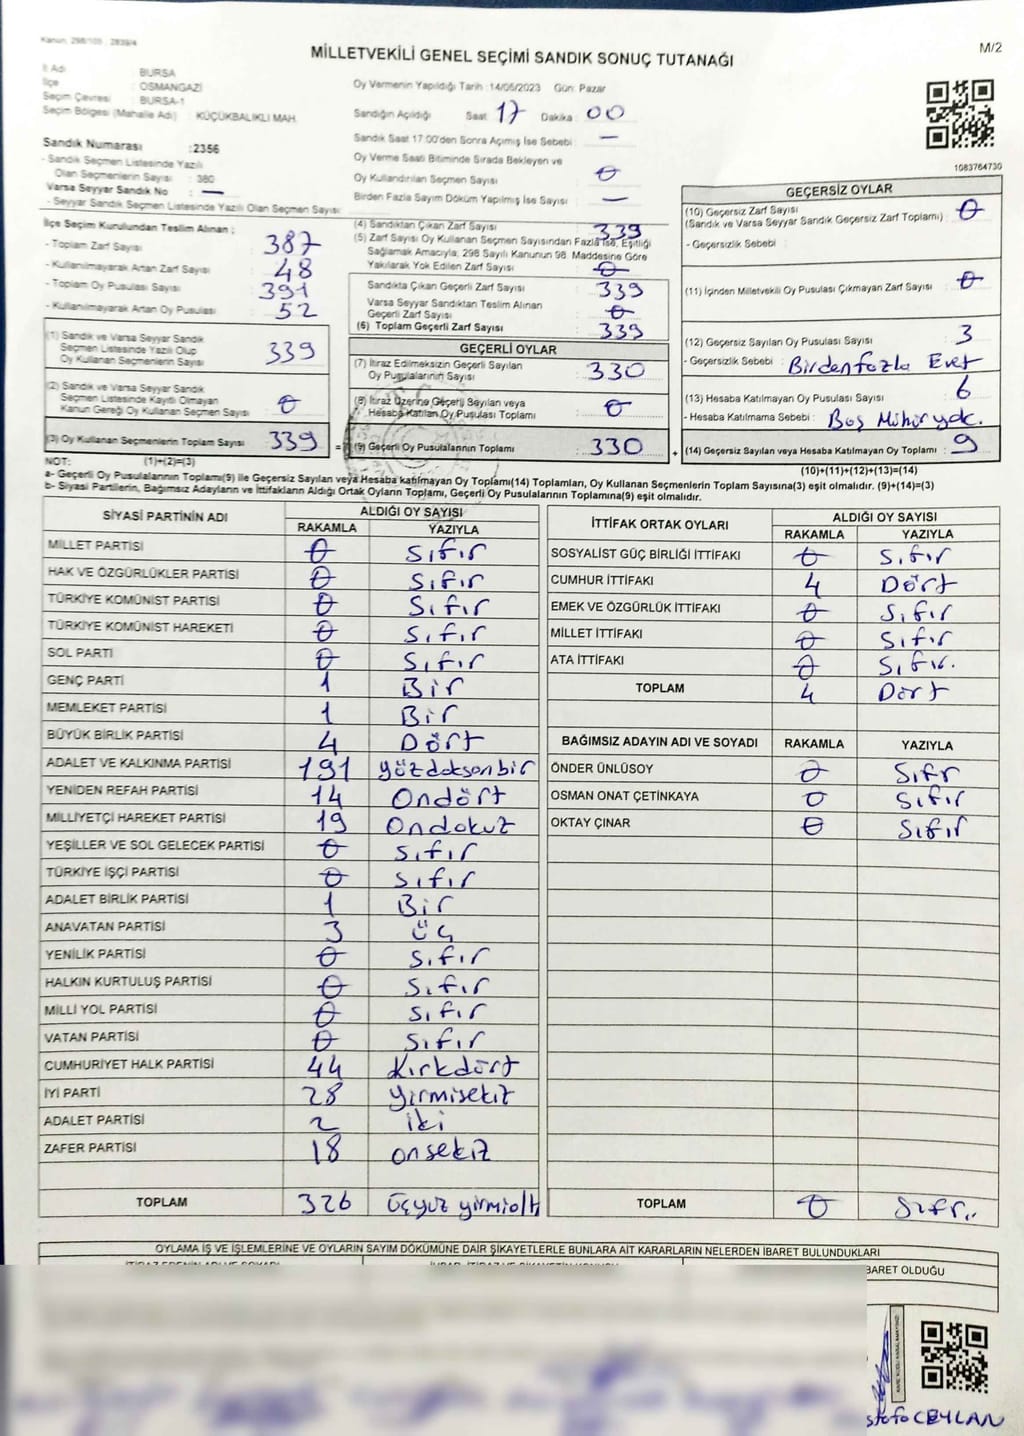 Kanun: 298/105 : 2839/4
M/2
MİLLETVEKİLİ GENEL SEÇİMİ SANDIK SONUÇ TUTANAĞI
İl Adı : BURSA
İlçe : OSMANGAZİ
Seçim Çevresi : BURSA-1
Seçim Bölgesi (Mahalle Adı) : KÜÇÜKBALIKLI MAH.
Oy Vermenin Yapıldığı Tarih :14/05/2023 Gün: Pazar
Sandığın Açıldığı Saat : 17 Dakika : 00
Sandık Saat 17:00'den Sonra Açımış İse Sebebi : —
Oy Verme Saati Bitiminde Sırada Bekleyen ve
Oy Kullandırılan Seçmen Sayısı : 0
Birden Fazla Sayım Döküm Yapılmış İse Sayısı : —
1083764730
Sandık Numarası : 2356
- Sandık Seçmen Listesinde Yazılı
Olan Seçmenlerin Sayısı : 380
Varsa Seyyar Sandık No : —
- Seyyar Sandık Seçmen Listesinde Yazılı Olan Seçmen Sayısı:
İlçe Seçim Kurulundan Teslim Alınan ;
- Toplam Zarf Sayısı : 387
- Kullanılmayarak Artan Zarf Sayısı : 48
- Toplam Oy Pusulası Sayısı : 391
- Kullanılmayarak Artan Oy Pusulası : 52
(1) Sandık ve Varsa Seyyar Sandık
Seçmen Listesinde Yazılı Olup
Oy Kullanan Seçmenlerin Sayısı : 339
(2) Sandık ve Varsa Seyyar Sandık
Seçmen Listesinde Kayıtlı Olmayan
Kanun Gereği Oy Kullanan Seçmen Sayısı : 0
(3) Oy Kullanan Seçmenlerin Toplam Sayısı : 339
(4) Sandıktan Çıkan Zarf Sayısı : 339
(5) Zarf Sayısı Oy Kullanan Seçmen Sayısından Fazla İse, Eşitliği
Sağlamak Amacıyla; 298 Sayılı Kanunun 98. Maddesine Göre
Yakılarak Yok Edilen Zarf Sayısı : 0
Sandıkta Çıkan Geçerli Zarf Sayısı : 339
Varsa Seyyar Sandıktan Teslim Alınan
Geçerli Zarf Sayısı : 0
(6) Toplam Geçerli Zarf Sayısı : 339
GEÇERLİ OYLAR
(7) İtiraz Edilmeksizin Geçerli Sayılan
Oy Pusulalarının Sayısı : 330
(8) İtiraz Üzerine Geçerli Sayılan veya
Hesaba Katılan Oy Pusulası Toplamı : 0
= (9) Geçerli Oy Pusulalarının Toplamı : 330 +
GEÇERSİZ OYLAR
(10) Geçersiz Zarf Sayısı
(Sandık ve Varsa Seyyar Sandık Geçersiz Zarf Toplamı) : 0
- Geçersizlik Sebebi :
(11) İçinden Milletvekili Oy Pusulası Çıkmayan Zarf Sayısı : 0
(12) Geçersiz Sayılan Oy Pusulası Sayısı : 3
- Geçersizlik Sebebi : Birden fazla Evet
(13) Hesaba Katılmayan Oy Pusulası Sayısı : 6
- Hesaba Katılmama Sebebi : Boş Mühür yok.
(14) Geçersiz Sayılan veya Hesaba Katılmayan Oy Toplamı : 9
NOT: (1)+(2)=(3)
(10)+(11)+(12)+(13)=(14)
a- Geçerli Oy Pusulalarının Toplamı(9) ile Geçersiz Sayılan veya Hesaba katılmayan Oy Toplamı(14) Toplamları, Oy Kullanan Seçmenlerin Toplam Sayısına(3) eşit olmalıdır. (9)+(14)=(3)
b- Siyasi Partilerin, Bağımsız Adayların ve İttifakların Aldığı Ortak Oyların Toplamı, Geçerli Oy Pusulalarının Toplamına(9) eşit olmalıdır.
SİYASİ PARTİNİN ADI ALDIĞI OY SAYISI
RAKAMLA YAZIYLA
MİLLET PARTİSİ 0 Sıfır
HAK VE ÖZGÜRLÜKLER PARTİSİ 0 Sıfır
TÜRKİYE KOMÜNİST PARTİSİ 0 Sıfır
TÜRKİYE KOMÜNİST HAREKETİ 0 Sıfır
SOL PARTİ 0 Sıfır
GENÇ PARTİ 1 Bir
MEMLEKET PARTİSİ 1 Bir
BÜYÜK BİRLİK PARTİSİ 4 Dört
ADALET VE KALKINMA PARTİSİ 191 yözdoksonbir
YENİDEN REFAH PARTİSİ 14 Ondört
MİLLİYETÇİ HAREKET PARTİSİ 19 Ondokuz
YEŞİLLER VE SOL GELECEK PARTİSİ 0 Sıfır
TÜRKİYE İŞÇİ PARTİSİ 0 Sıfır
ADALET BİRLİK PARTİSİ 1 Bir
ANAVATAN PARTİSİ 3 Üç
YENİLİK PARTİSİ 0 Sıfır
HALKIN KURTULUŞ PARTİSİ 0 Sıfır
MİLLİ YOL PARTİSİ 0 Sıfır
VATAN PARTİSİ 0 Sıfır
CUMHURİYET HALK PARTİSİ 44 Kırkdört
İYİ PARTİ 28 yirmisekiz
ADALET PARTİSİ 2 iki
ZAFER PARTİSİ 18 onsekiz
TOPLAM 326 üçyuz yirmialtı
İTTİFAK ORTAK OYLARI ALDIĞI OY SAYISI
RAKAMLA YAZIYLA
SOSYALİST GÜÇ BİRLİĞİ İTTİFAKI 0 Sıfır
CUMHUR İTTİFAKI 4 Dört
EMEK VE ÖZGÜRLÜK İTTİFAKI 0 Sıfır
MİLLET İTTİFAKI 0 Sıfır
ATA İTTİFAKI 0 Sıfır.
TOPLAM 4 Dört
BAĞIMSIZ ADAYIN ADI VE SOYADI RAKAMLA YAZIYLA
ÖNDER ÜNLÜSOY 0 Sıfr
OSMAN ONAT ÇETİNKAYA 0 Sıfır
OKTAY ÇINAR 0 Sıfır
TOPLAM 0 Sıfr..
OYLAMA İŞ VE İŞLEMLERİNE VE OYLARIN SAYIM DÖKÜMÜNE DAİR ŞİKAYETLERLE BUNLARA AİT KARARLARIN NELERDEN İBARET BULUNDUKLARI
BARET OLDUĞU
stafa CEYLAN